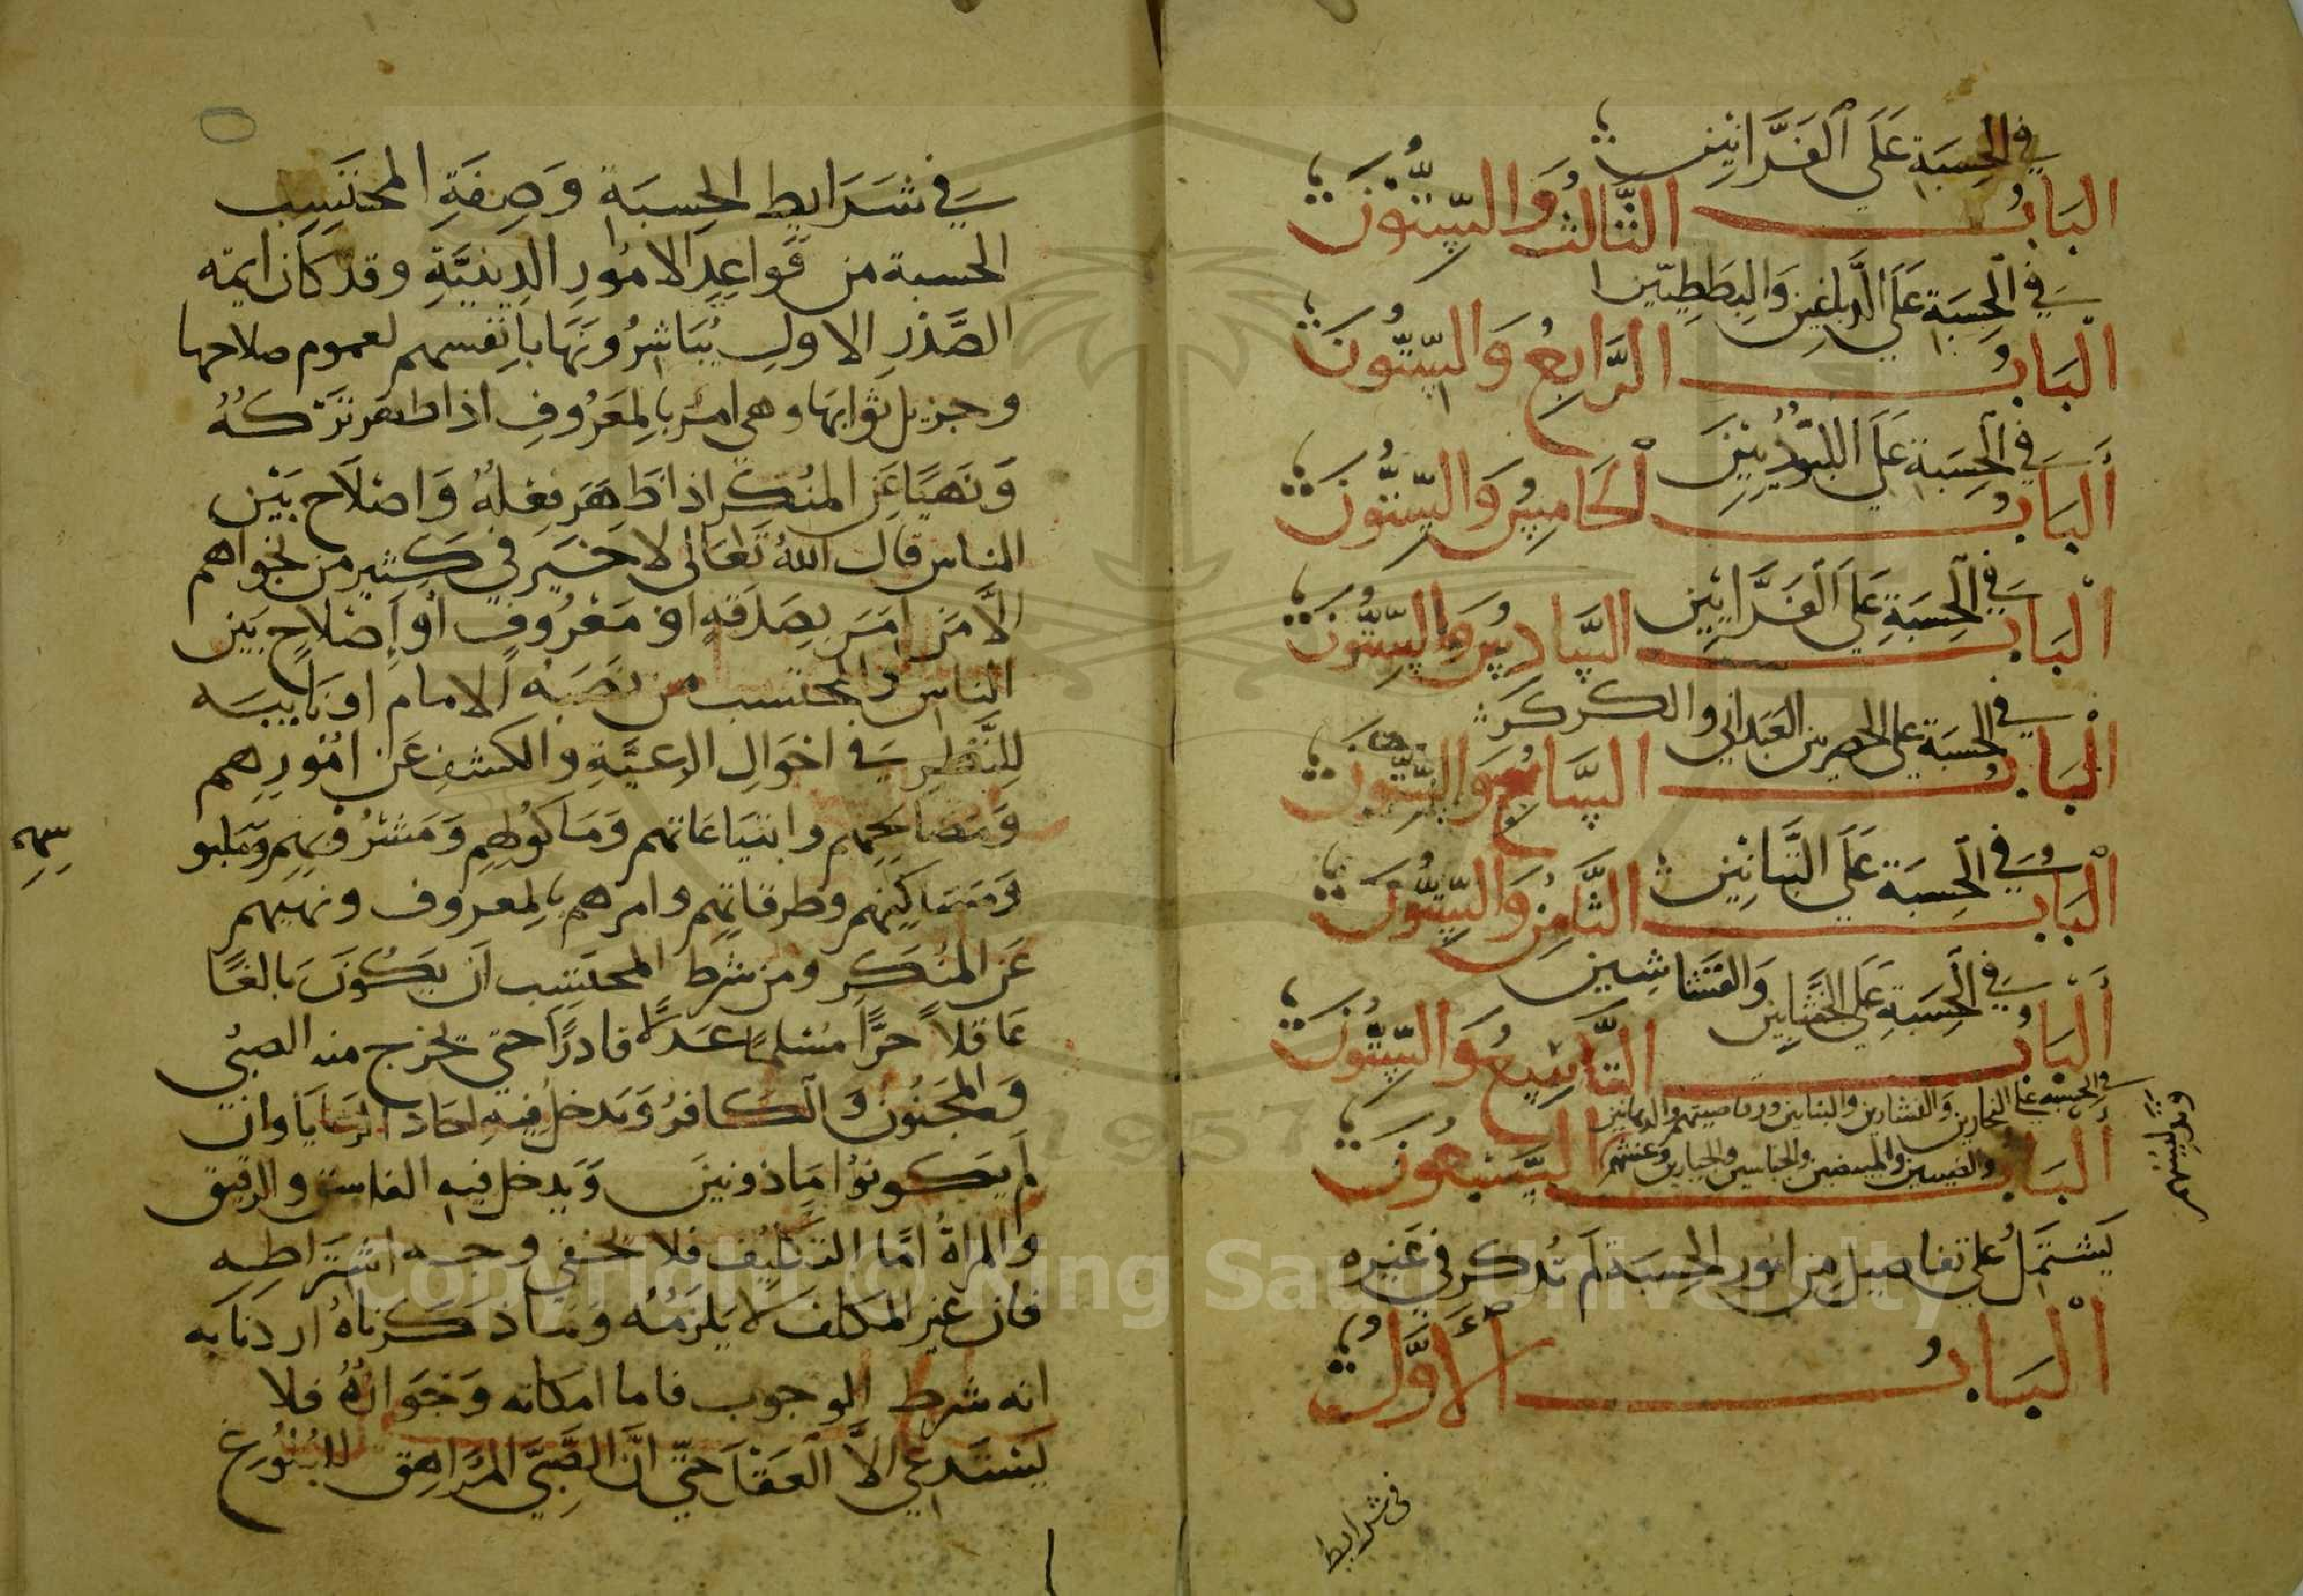 في الحِسبَة عَلَى الفَرَّانِين
البَابُ الثَّالثُ وَالسِّتُّونَ
في الحِسبَة عَلَى الدباغين وَالبططِيّين
البَابُ الرَّابِعُ وَالسِّتُّونَ
في الحِسبَة عَلَى اللبُوديين
البَابُ الخَامِسُ وَالسِّتُّونَ
في الحِسبَة عَلَى الفَرَّايِين
البَابُ السَّادِسُ وَالسِّتُّونَ
في الحسبَة على الحصريين العَبدَاني والكركر
البَابُ السَّابعُ وَالسِّتُّونَ
في الحِسبَة عَلَى التَّبانِين
البَابُ الثَّامِنُ وَالسِّتُّونَ
في الحِسبَة عَلَى الخَشَّابِين وَالقشاشِين
البَابُ التَّاسِعُ وَالسِّتُّونَ
في الحسبة على النجارين والنشارين والبنايين ورقاصيهم والدهانين
البَابُ السَّبْعُونَ
والمبيضين والجباسين والجيارين وغشهم وتدليسهم
يَشتَمِلُ عَلى تفاصيل من امور الحِسبَة لَم تُذكَر في غَيره
البَابُ الأَوَّلُ
في شرايط
في شَرَايطِ الحِسبَة وَصِفَةِ المحتَسِبِ
الحسبة من قَواعِدِ الامُورِ الدِينيَّةِ وقد كَان ايمة
الصَّدْرِ الاولِ يُبَاشِرُونَهَا بِانفسهم لعموم صلاحها
وجزيل ثوابهَا وهي امر بالمَعرُوفِ اذا ظهر تَرْكُهُ
وَنَهيًا عَن المنُكَر اذا ظَهَر فِعْلُهُ وَاصْلَاح بَيْن
الناس قال اللهُ تَعَالى لا خَير في كَثِير من نجواهم
الاَّ مَن اَمَرَ بِصَدَقَةٍ اوْ مَعْرُوفٍ اَوْ إِصْلاحٍ بَين
الناس والمحتسب من نَصَبَهُ الامام او نَايبَه
لِلنَّظرِ في احْوَالِ الرعيَّةِ والكشفِ عَن امُورِهم
وَمَصَالحِهم وابتيَاعَاتهم وَمَاكُولِهِم وَمَشْرُوبِهِم وَمَلبو
سهم
وَمَسَاكِنِهم وطرقاتِهم وامرهم بالمعروف ونهيهم
عَن المنُكَرِ ومن شرط المحتَسِب اَن يَكُونَ بَالغًا
عَاقلاً حرًّا مُسْلمًا عَدلاً قادرًا حتى يخرج منه الصبُي
وَالمَجنُون وَالكَافرُ وَيَدخلُ فِيهِ احاد الرعَايَا وان
لم يَكونوُا مَاذونينَ وَيَدخل فيه الفاسق والرقيق
والمراةُ امَّا التكليُف فلا يخفى وجه اشتَراطه
فان غير المكلف لا يَلزَمُه وَمَا ذكَرناهُ اردنَا به
انه شرط الوجوب فاما امكانه وَجَوَازُهُ فلا
يَسْتَدعي الاَّ العَقْلَ حَتى اَنَّ الصَّبيَّ المُرَاهِق للبُلُوغ